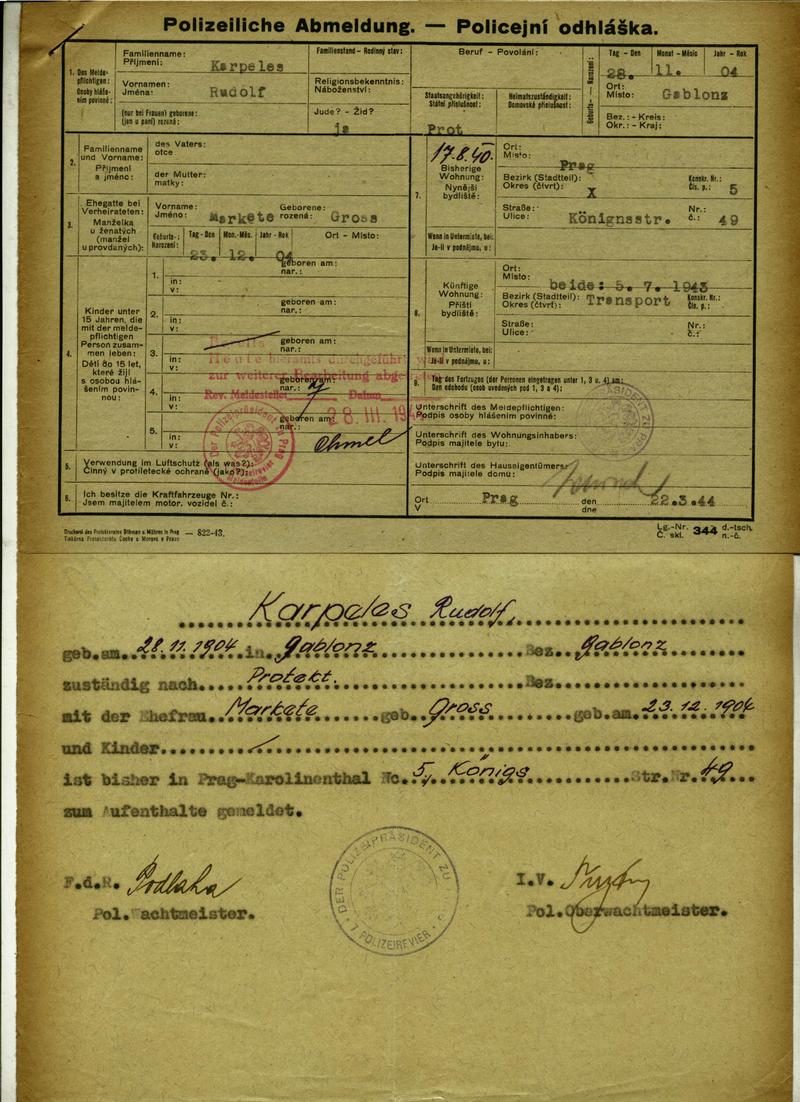 Polizeiliche Abmeldung. — Policejní odhláška.
1. Des Melde-pflichtigen: Osoby hláše-ním povinné:
Familienname: Příjmení: Karpeles
Familienstand - Rodinný stav:
Vornamen: Jméno: Rudolf
Religionsbekenntnis: Náboženství:
(nur bei Frauen) geborene: (jen u paní) rozená:
Jude? - Žid? ja
Beruf - Povolání:
Staatsangehörigkeit: Státní příslušnost: Prot
Heimatszuständigkeit: Domovská příslušnost:
Geburts- — Narození:
Tag - Den Monat - Měsíc Jahr - Rok
28. 11. 04
Ort: Místo: Gablonz
Bez.: - Kreis: Okr.: - Kraj:
2. Familienname und Vorname: Příjmení a jméno:
des Vaters: otce
der Mutter: matky:
3. Ehegatte bei Verheirateten: Manželka u ženatých (manžel u provdaných):
Vorname: Jméno: Markete
Geborene: rozená: Gross
Geburts-: Narození:
Tag - Den Mon.-Měs. Jahr - Rok
Ort - Místo:
23. 12. 04
4. Kinder unter 15 Jahren, die mit der melde-pflichtigen Person zusam-men leben: Děti do 15 let, které žijí s osobou hlá-šením povin-nou:
1. geboren am: nar.:
in: v:
2. geboren am: nar.:
in: v:
3. geboren am: nar.:
in: v:
4. geboren am: nar.:
in: v:
5. geboren am: nar.:
in: v:
Heute hieramts durchgeführt
zur weiteren Bearbeitung
Rev. Meldestelle Datum
28 III. 19
Der Polizeipräsident in Prag
Meldestelle
Chmel
5. Verwendung im Luftschutz (als was?): Činný v protiletecké ochraně (jako?):
6. Ich besitze die Kraftfahrzeuge Nr.: Jsem majitelem motor. vozidel č.:
17.8.40.
7. Bisherige Wohnung: Nynější bydliště:
Ort: Místo: Prag
Bezirk (Stadtteil): Okres (čtvrt): X
Konskr. Nr.: Čís. p.: 5
Straße: Ulice: Königsstr.
Nr.: č.: 49
Wenn in Untermiete, bei: Je-li v podnájmu, u:
8. Künftige Wohnung: Příští bydliště:
Ort: Místo: beide: 5. 7. 1943
Bezirk (Stadtteil): Okres (čtvrt): Transport
Konskr. Nr.: Čís. p.:
Straße: Ulice:
Nr.: č.:
Wenn in Untermiete, bei: Je-li v podnájmu, u:
9. Tag des Fortzuges (der Personen eingetragen unter 1, 3 u. 4) am: Den odchodu (osob uvedených pod 1, 3 a 4):
Unterschrift des Meldepflichtigen: Podpis osoby hlášením povinné:
Unterschrift des Wohnungsinhabers: Podpis majitele bytu:
Unterschrift des Hauseigentümers: Podpis majitele domu:
Ort V Prag den dne 22.3.44
Druckerei des Protektorates Böhmen u. Mähren in Prag — 822-43.
Tiskárna Protektorátu Čechy a Morava v Praze
Lg.-Nr. Č. skl. 344 d.-tsch. n.-č.
Karpeles Rudolf
geb.am 28.11.1904 in Gablonz Bez. Gablonz
zuständig nach Protekt. Bez
mit der Ehefrau Markete geb. Gross geb.am 23.12.1904
und Kinder
ist bisher in Prag-Karolinenthal Nc. 5, Königs Str.Nr. 49
zum Aufenthalte gemeldet.
F.d.R. Podlaha
I.V.
Pol.Wachtmeister.
Pol.Oberwachtmeister.
DER POLIZEIPRÄSIDENT ZU
7 POLIZEIREVIER